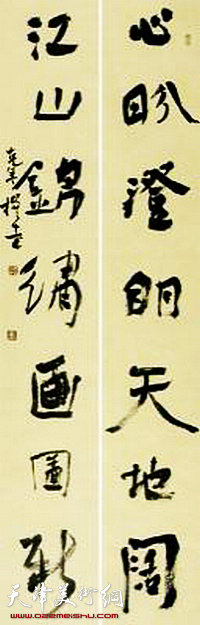 心盼澄明天地阔
江山锦绣画图新
天津美术网
www.022meishu.com